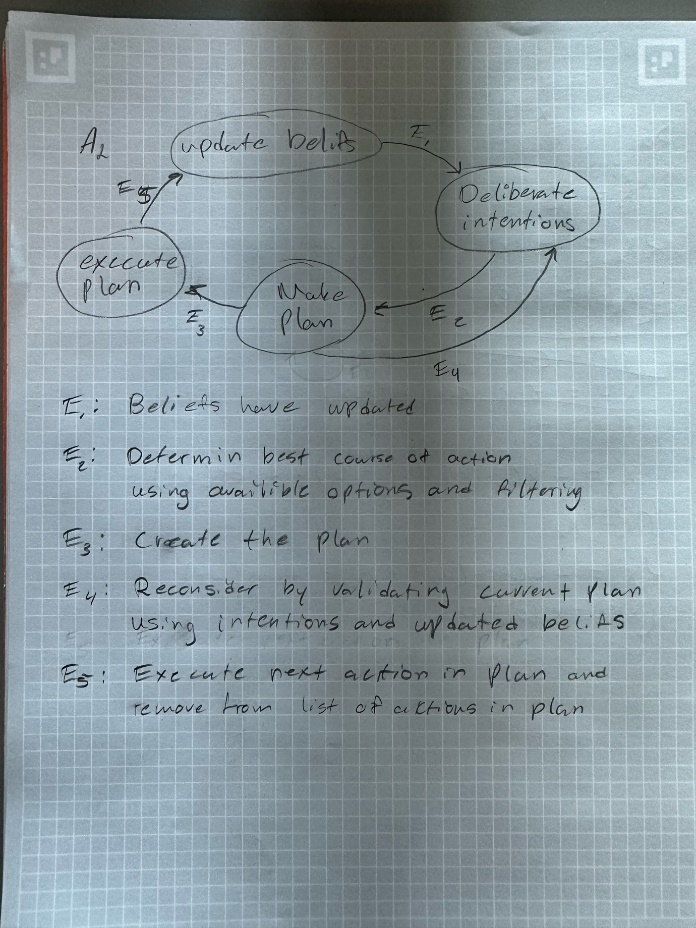 A2
update belifs
E1
Deliberate
intentions
E5
execute
plan
Make
Plan
E3
E2
E4
E1: Beliefs have updated
E2: Determin best course of action
using availible options and filtering
E3: Create the plan
E4: Reconsider by validating current plan
using intentions and updated belifs
E5: Execute next action in plan and
remove from list of actions in plan